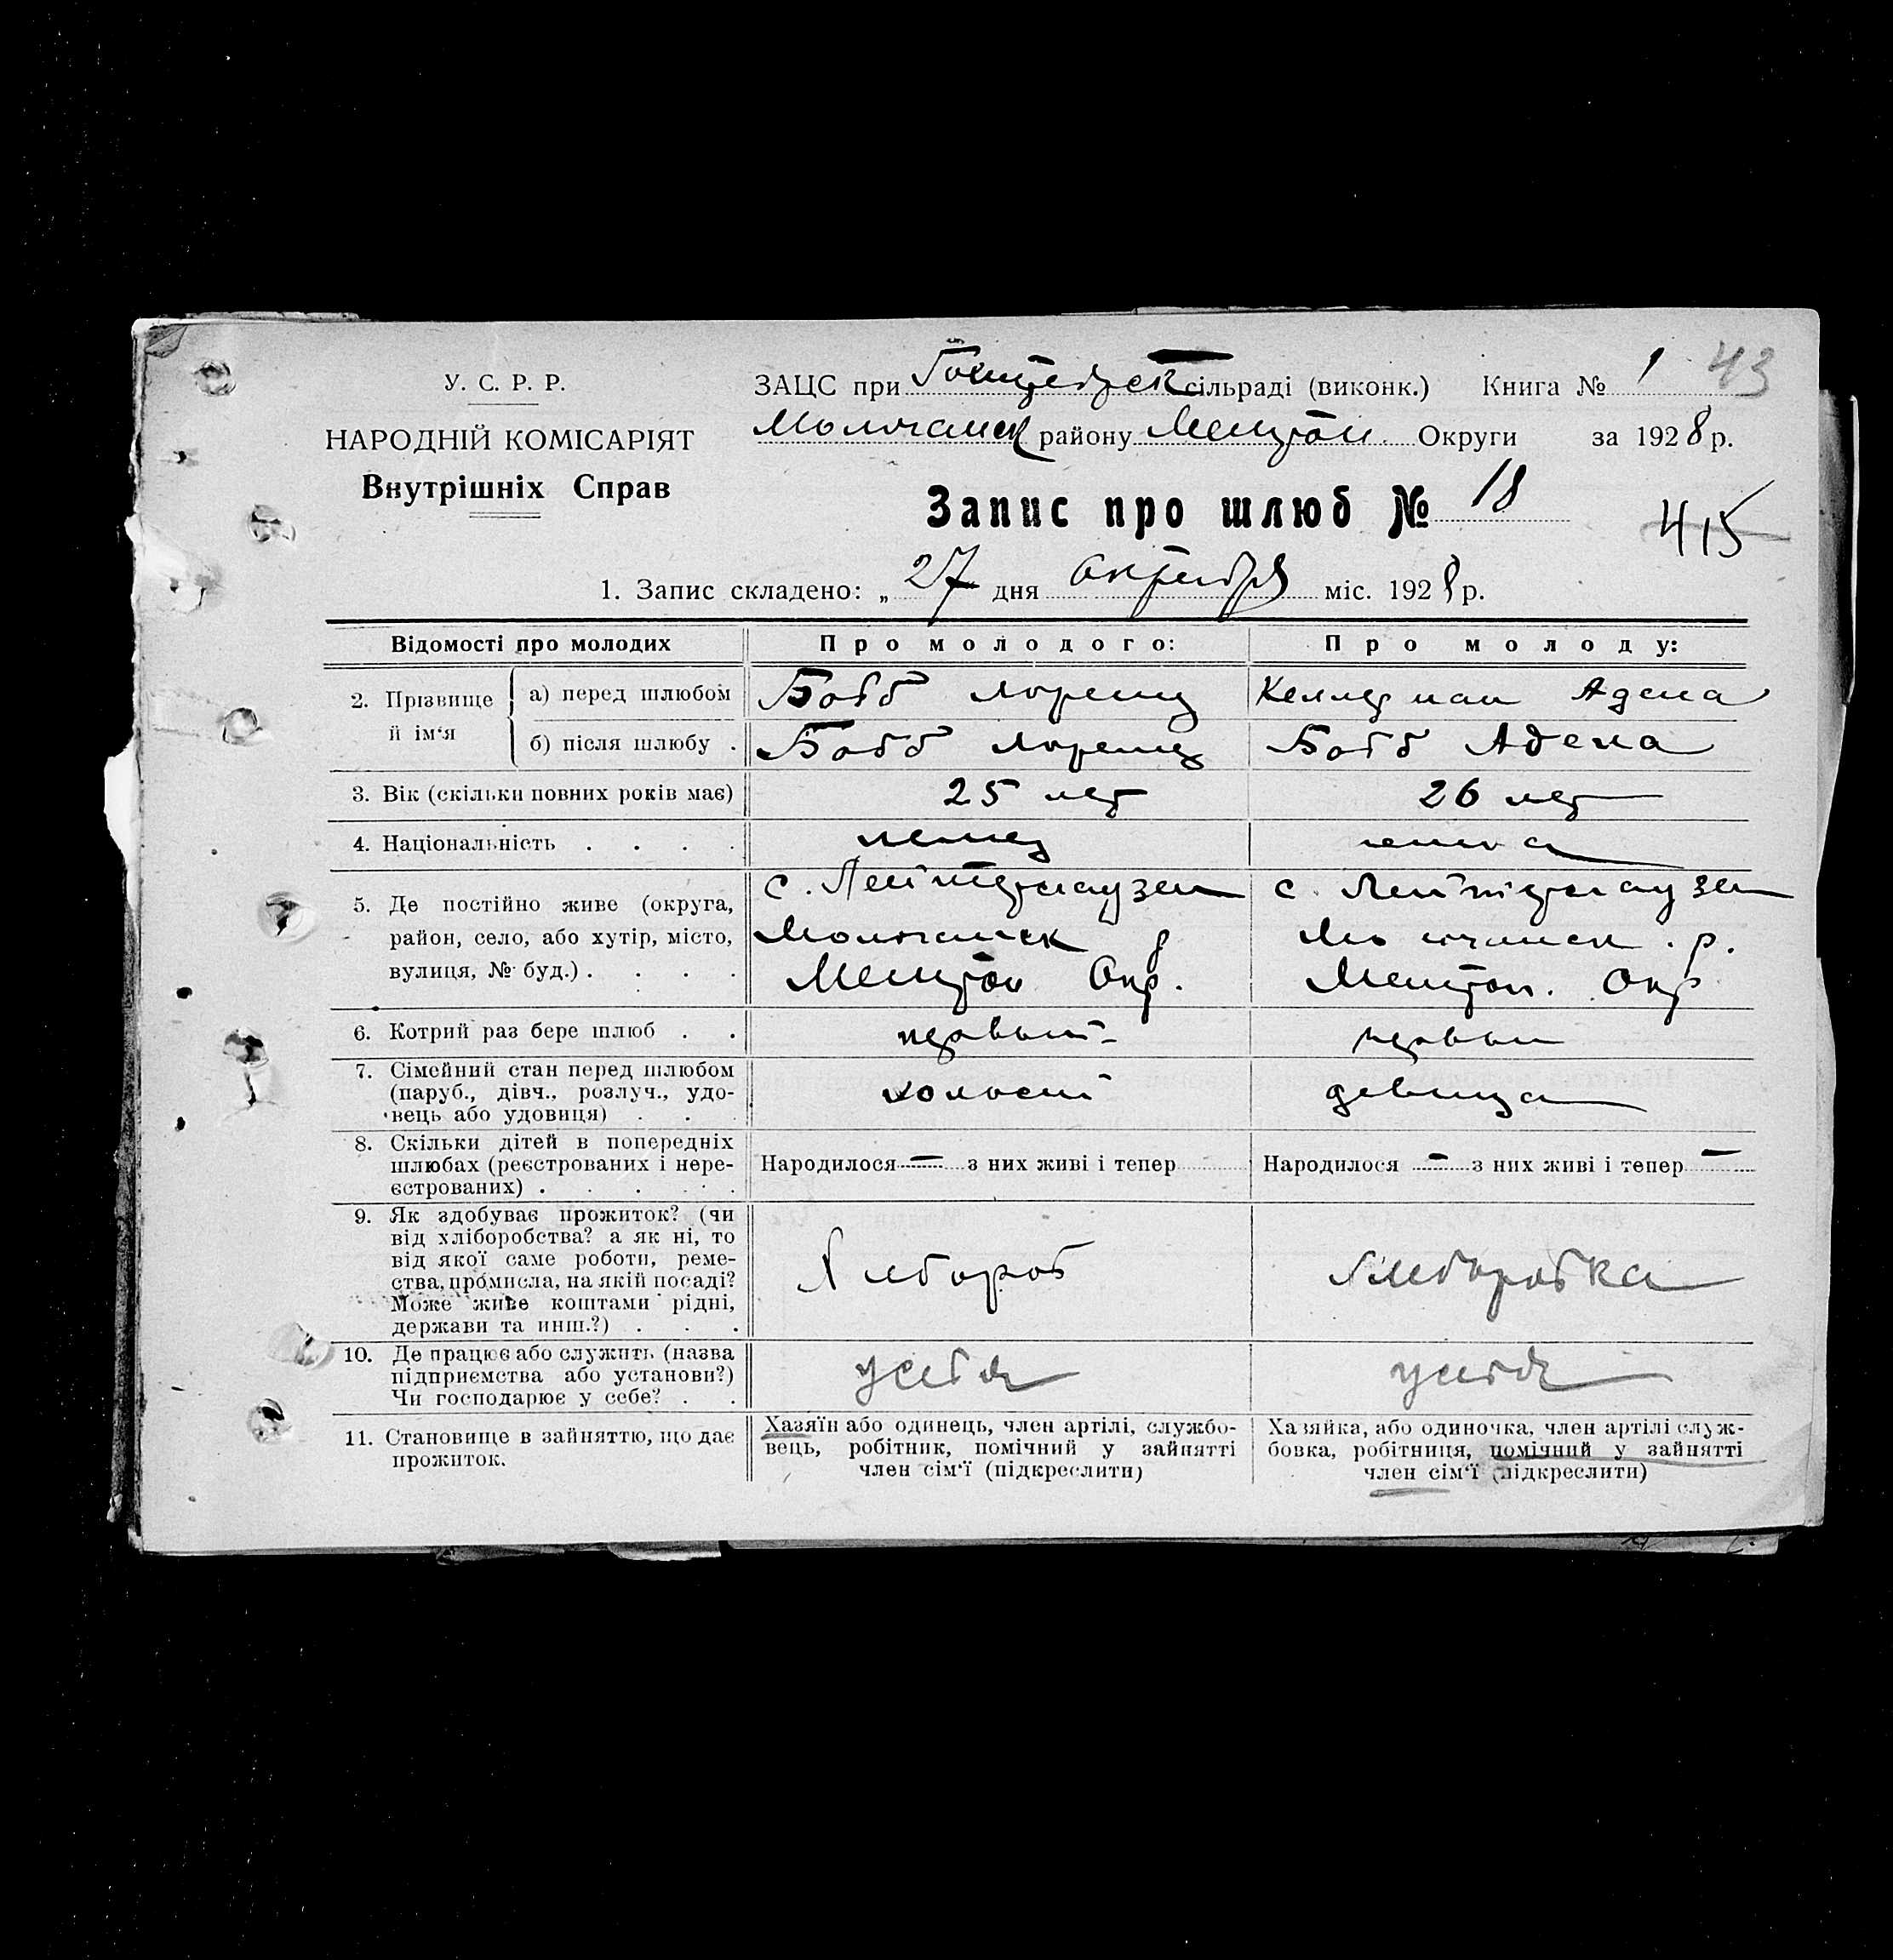 У. С. Р. Р.
НАРОДНІЙ КОМІСАРІЯТ
Внутрішніх Справ
ЗАЦС при сільраді (виконк.) Книга № 1 43
Молочанск району Мелітоп. Округи за 1928 р.
Запис про шлюб № 18
415
1. Запис складено: „ 27 дня октября міс. 1928 р.
Відомості про молодих Про молодого: Про молоду:
2. Прізвище й ім‘я
а) перед шлюбом Бобб Лоренц Келлерман Адена
б) після шлюбу . Бобб Лоренц Бобб Адена
3. Вік (скільки повних років має) 25 лет 26 лет
4. Національність . . . . немец немка
5. Де постійно живе (округа,
район, село, або хутір, місто,
вулиця, № буд.) . . . .
с. Лейтерсгаузен
Молочанск р
Мелитоп Окр.
с. Лейтерсгаузен
Молочанск. р.
Мелитоп. Окр
6. Котрий раз бере шлюб . . первый первый
7. Сімейний стан перед шлюбом
(паруб., дівч., розлуч., удо-
вець або удовиця) . . .
холост девица
8. Скільки дітей в попередніх
шлюбах (реєстрованих і нере-
єстрованих) . . . . . .
Народилося — з них живі і тепер
Народилося — з них живі і тепер —
9. Як здобуває прожиток? (чи
від хліборобства? а як ні, то
від якої саме роботи, реме-
ства, промисла, на якій посаді?
Може живе коштами рідні,
держави та инш.?) . . .
Хлебороб Хлеборобка
10. Де працює або служить (назва
підприємства або установи?)
Чи господарює у себе? . .
у себя у себя
11. Становище в зайняттю, що дає
прожиток.
Хазяїн або одинець, член артілі, службо-
вець, робітник, помічний у зайнятті
член сім‘ї (підкреслити)
Хазяйка, або одиночка, член артілі служ-
бовка, робітниця, помічний у зайнятті
член сім‘ї (підкреслити)